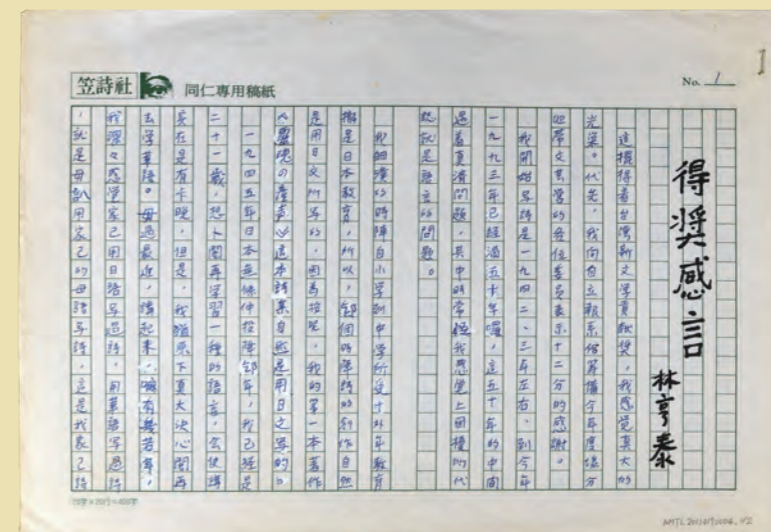 笠詩社 同仁專用稿紙 No. 1
得獎感言
林亨泰
這擺得着台灣新文学貢献獎,我感觉真大的
光荣。代先,我向自立報系恰籌備今年度塩分
地帶文芸營的各位委員表示十二分的感謝。
我開始写詩是一九四二、三年左右,到今年
一九九三年已經滿五十年囉,這五十年的中間
遇着真濟問題,其中時常使我感觉上困擾的代
誌就是語言的問題。
我細漢的時陣自小学到中学所受十外年教育
攏是日本教育,所以,個時陣詩的創作自然
是用日文所写的,因為按呢,我的第一本著作
《靈魂の產声》這本詩集自然是用日文写的。
一九四五年日本無條件投降年,我已經是
二十一歲,想卜閣再学習一種的語言,会使講
实在是有卡晚,但是,我猶原下真大决心閣再
去学華語。毋過最近,講起来,嘛有幾若年,
我深々感觉家己用日語写過詩,用華語写過詩
,就是毋用家己的母語写詩,這是我家己詩